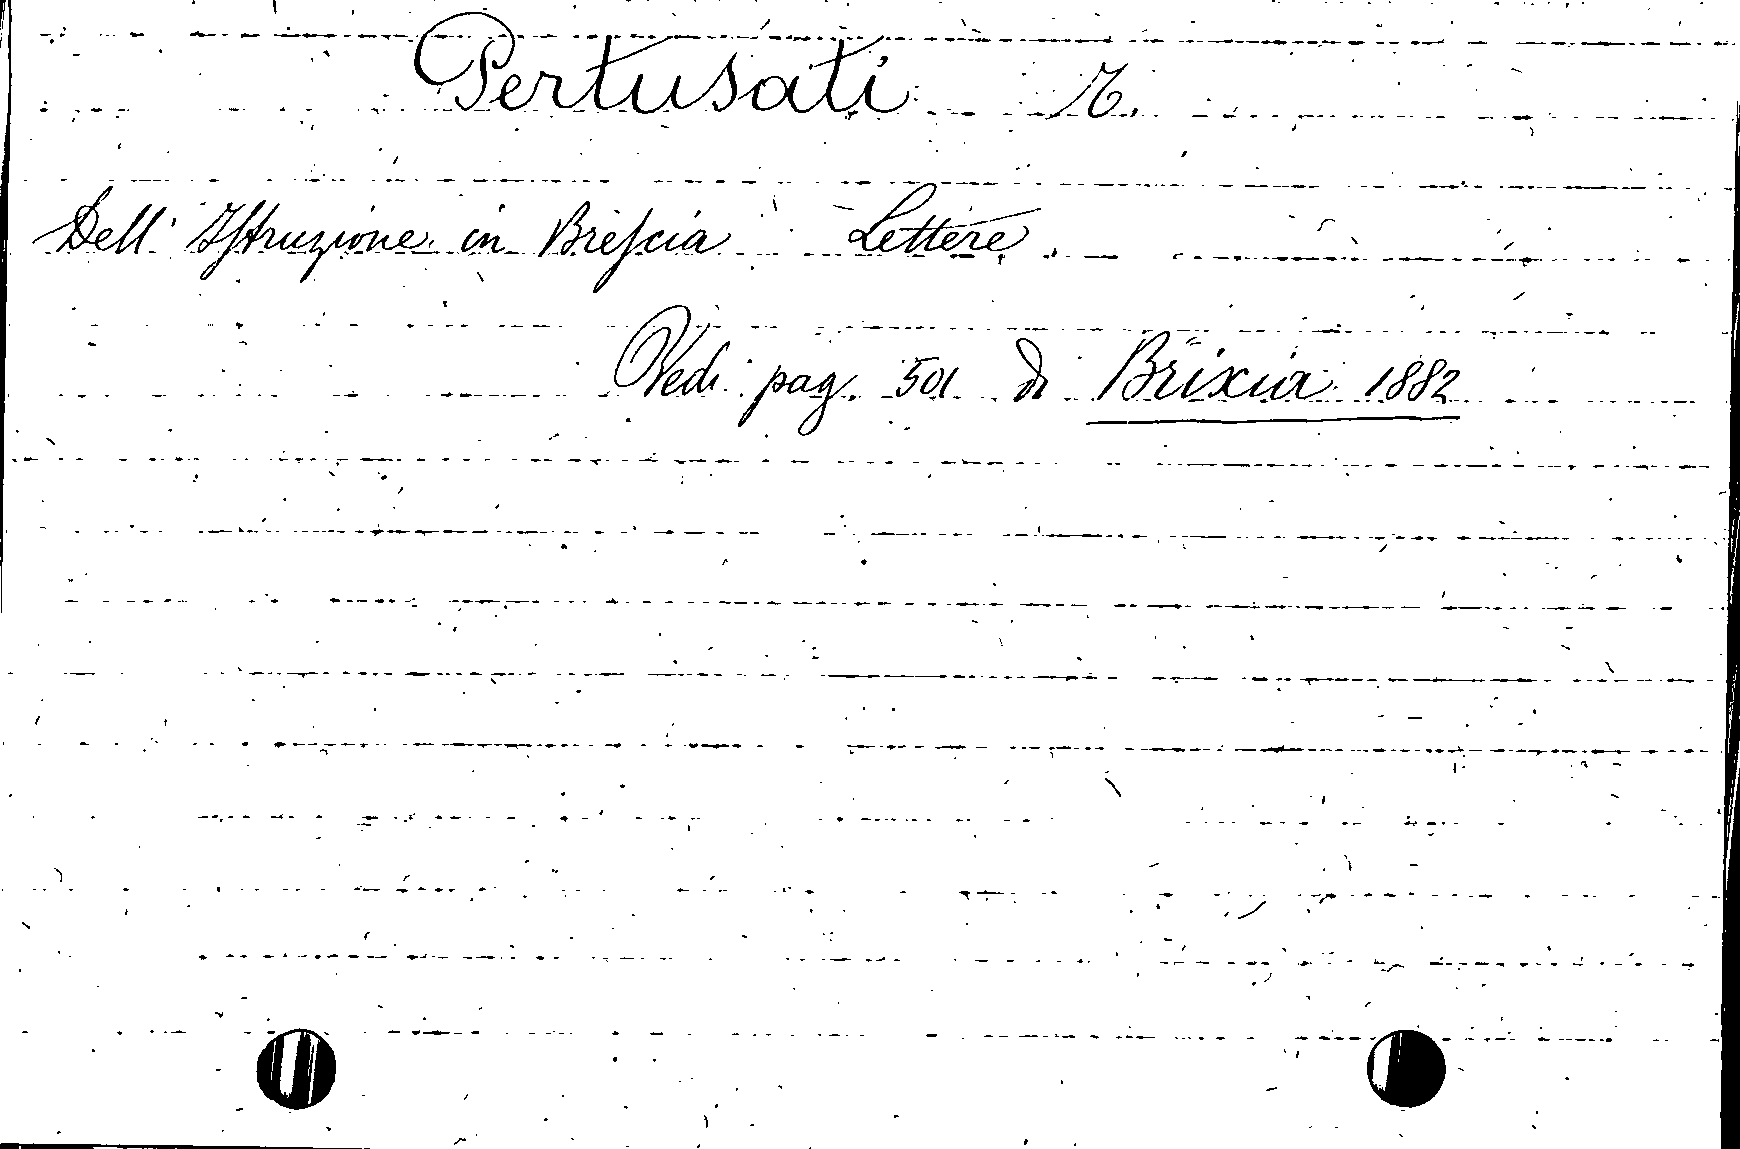 Pertusati
Dell' Iſtruzione in Breſcia Lettere
Vedi pag. 501 di Brixia 1882